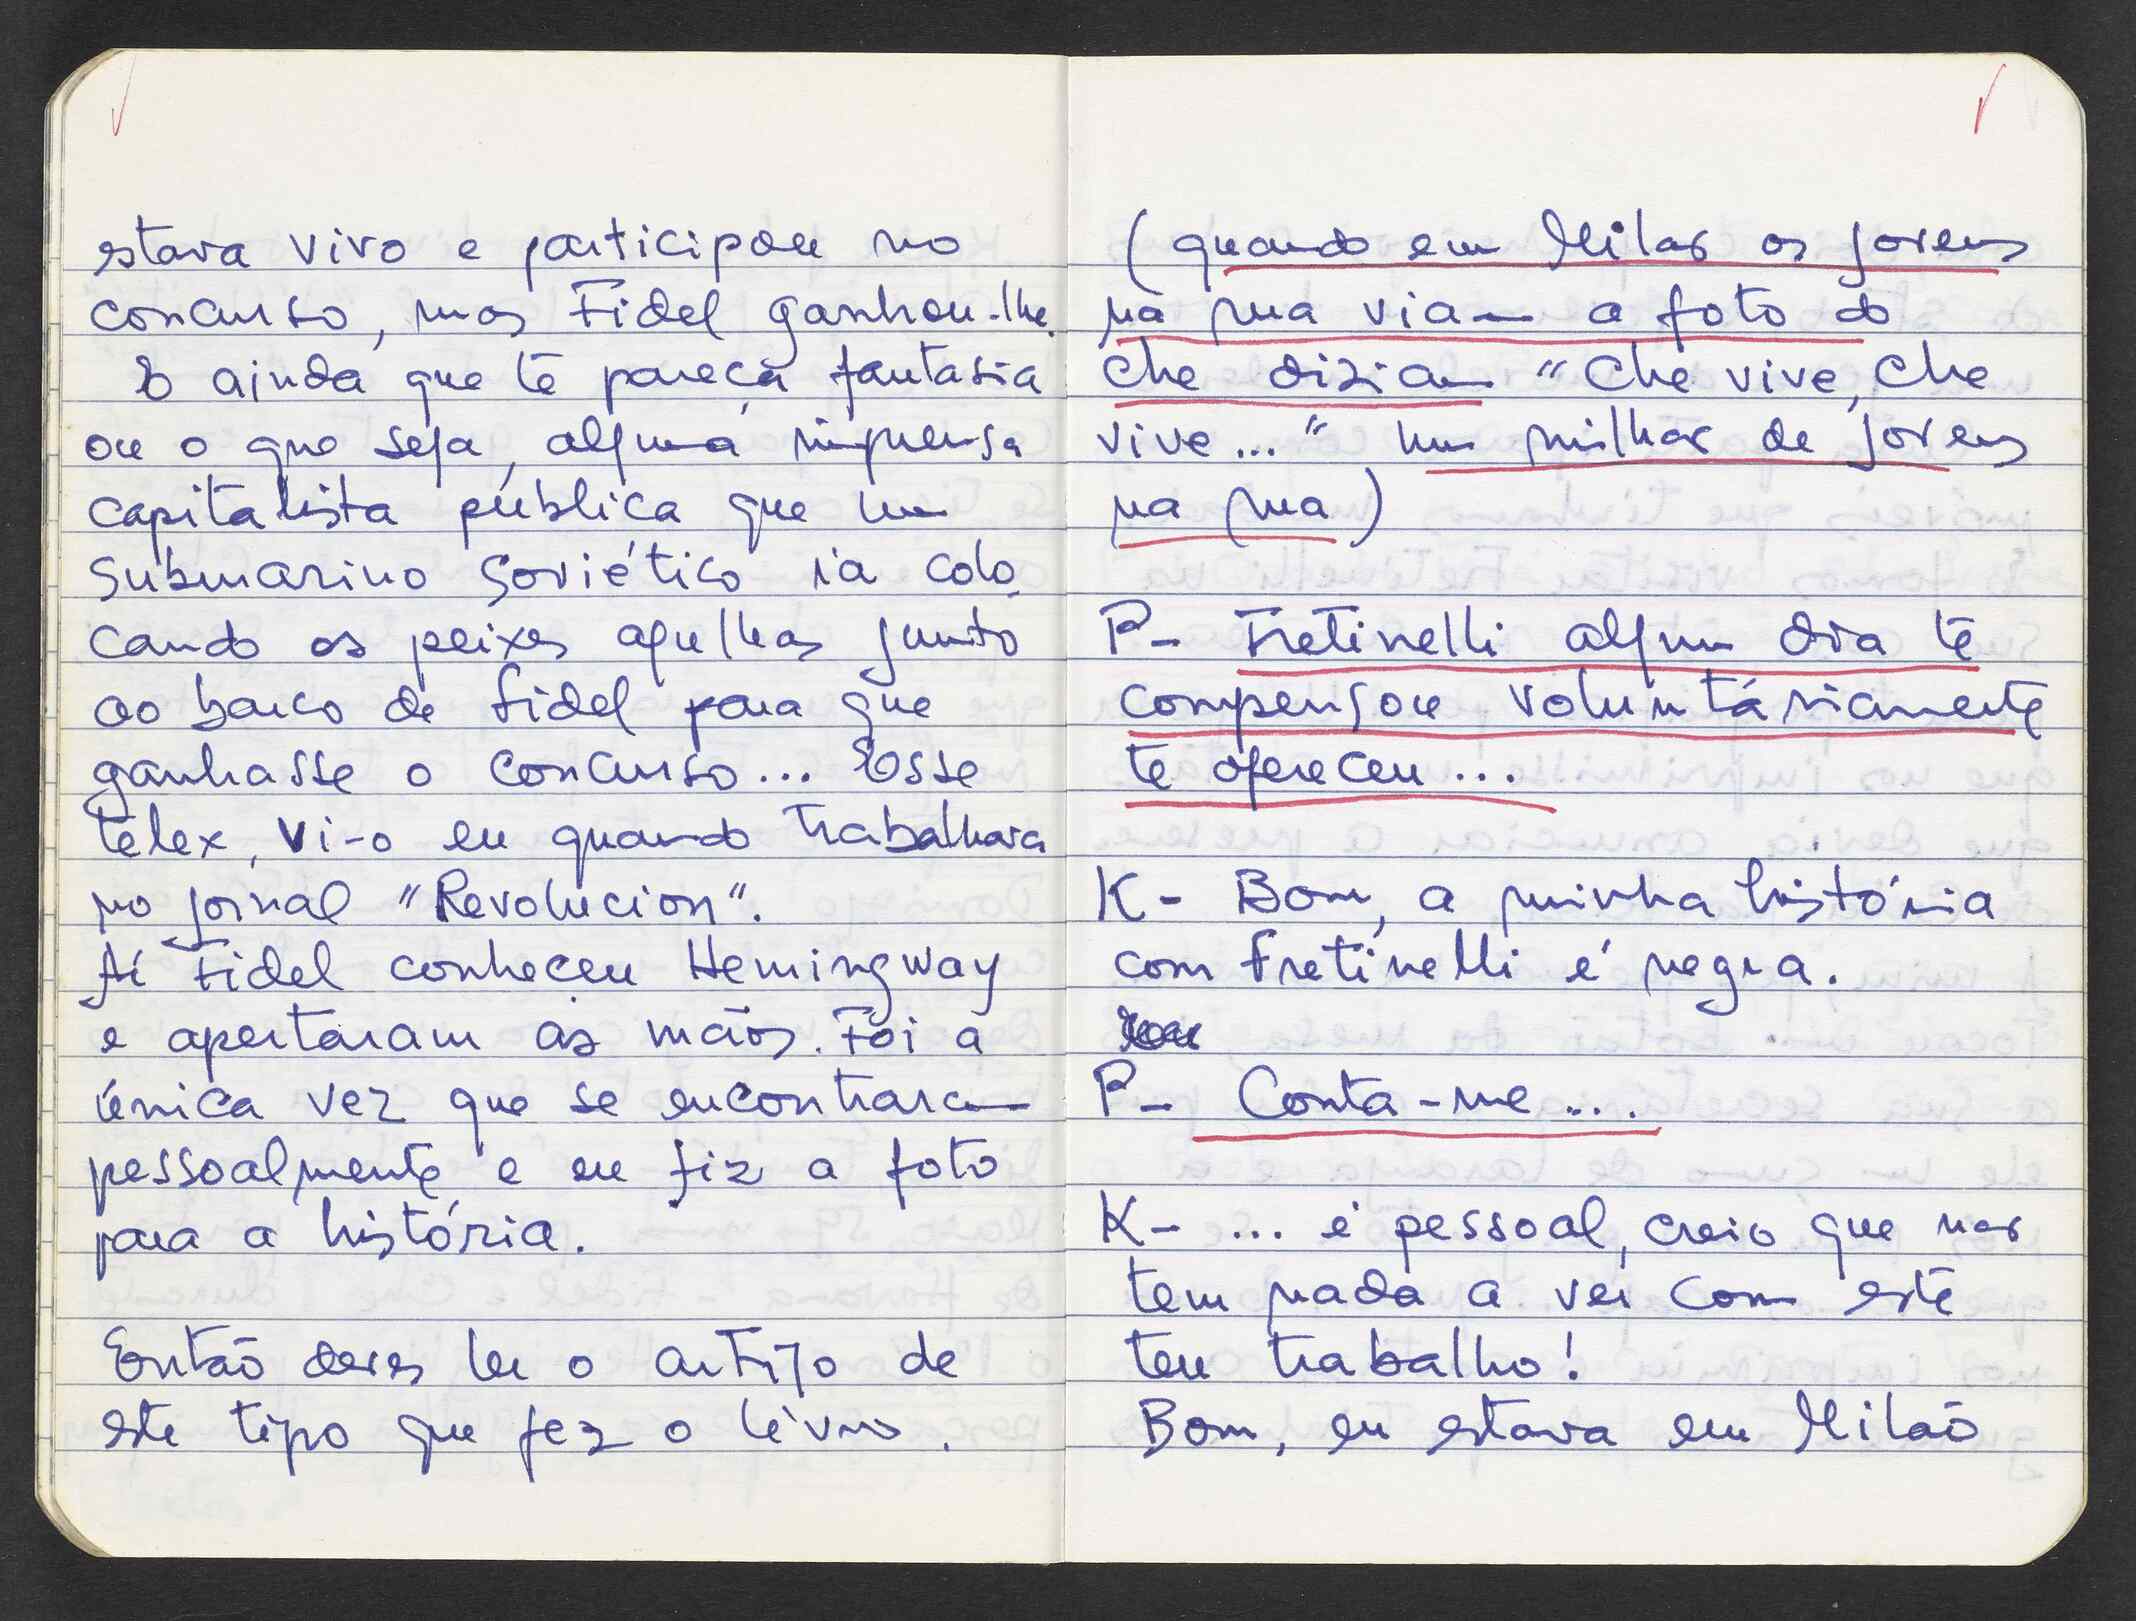 estava vivo e participou no
concurso, mas Fidel ganhou-lhe.
E ainda que te pareça fantasia
ou o que seja, alguma imprensa
capitalista publica que um
submarino soviético ia colo
cando os peixes agulhas junto
ao barco de Fidel para que
ganhasse o concurso... Esse
telex, vi-o eu quando trabalhava
no jornal "Revolucion".
Aí Fidel conheceu Hemingway
e apertaram as mãos. Foi a
única vez que se encontraram
pessoalmente e eu fiz a foto
para a história.
Então deves ler o artigo de
este tipo que fez o livro.
(quando em Milão os jovens
na rua viam a foto do
Che diziam "Che vive, Che
vive..." um milhar de jovens
na rua)
P- Fretinelli algum dia te
compensou voluntáriamente
te ofereceu...
K- Bom, a minha história
com Fretinelli é negra.
P- Conta-me...
K- ... é pessoal, creio que não
tem nada a ver com este
teu trabalho!
Bom, eu estava em Milão